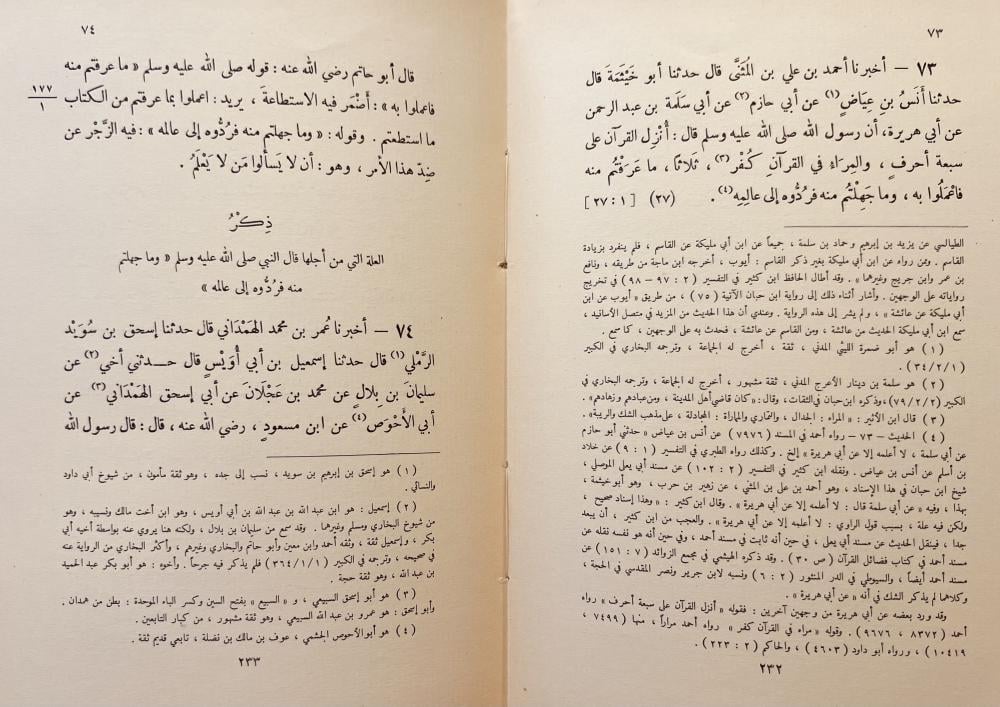 ٧٣
٧٣ — أخبرنا أحمد بن علي بن المُثَنَّى قال حدثنا أبو خَيْثَمَة قال
حدثنا أَنَسُ بن عِيَاضٍ(١) عن أبي حازم(٢) عن أبي سَلَمة بن عبد الرحمن
عن أبي هريرة، أن رسول الله صلى الله عليه وسلم قال: أُنْزِل القرآن على
سبعة أحرفٍ، والمِرَاءُ في القرآنِ كُفْر(٣)، ثَلاثاً، ما عَرَفْتُم منه
فاعْمَلُوا به، وما جَهِلْتُم منه فَرُدُّوه إلى عالِمِه(٤). (٢٧) [٢٧: ١]
الطيالسي عن يزيد بن إبرهيم وحماد بن سلمة، جميعاً عن ابن أبي مليكة عن القاسم، فلم ينفرد بزيادة
القاسم. وممن رواه عن ابن أبي مليكة بغير ذكر القاسم: أيوب، أخرجه ابن ماجة من طريقه، ونافع
بن عمر وابن جريج وغيرهما». وقد أطال الحافظ ابن كثير في التفسير (٢: ٩٧ — ٩٨) في تخريج
رواياته على الوجهين. وأشار أثناء ذلك إلى رواية ابن حبان الآتية (٧٥)، من طريق «أيوب عن ابن
أبي مليكة عن عائشة»، ولم يشر إلى هذه الرواية. وعندي أن هذا الحديث من المزيد في متصل الأسانيد،
سمع ابن أبي مليكة الحديث من عائشة، ومن القاسم عن عائشة، فحدث به على الوجهين، كما سمع.
(١) هو أبو ضمرة الليثي المدني، ثقة، أخرج له الجماعة، وترجمه البخاري في الكبير
(٣٤/٢/١).
(٢) هو سلمة بن دينار الأعرج المدني، ثقة مشهور، أخرج له الجماعة، وترجمه البخاري في
الكبير (٧٩/٢/٢)، وذكره ابن حبان في الثقات، وقال: «كان قاضي أهل المدينة، ومن عبادهم وزهادهم».
(٣) قال ابن الأثير: «المراء: الجدال، والتماري والمماراة: المجادلة، على مذهب الشك والريبة».
(٤) الحديث — ٧٣ — رواه أحمد في المسند (٧٩٧٦) عن أنس بن عياض «حدثني أبو حازم
عن أبي سلمة، لا أعلمه إلا عن أبي هريرة» إلخ. وكذلك رواه الطبري في التفسير (١: ٩) عن خلاد
بن أسلم عن أنس بن عياض. ونقله ابن كثير في التفسير (٢: ١٠٢) عن مسند أبي يعلى الموصلي،
شيخ ابن حبان في هذا الإسناد، وهو أحمد بن علي بن المثنى، عن زهير بن حرب، وهو أبو خيثمة،
بهذا، وفيه «عن أبي سلمة قال: لا أعلمه إلا عن أبي هريرة». وقال ابن كثير: «وهذا إسناد صحيح،
ولكن فيه علة، بسبب قول الراوي: لا أعلمه إلا عن أبي هريرة». والعجب من ابن كثير، أن يبعد
جدا، فينقل الحديث عن مسند أبي يعلى، في حين أنه ثابت في مسند أحمد، وفي حين أنه هو نفسه نقله عن
مسند أحمد في كتاب فضائل القرآن (ص ٣٠). وقد ذكره الهيثمي في مجمع الزوائد (٧: ١٥١) عن
مسند أحمد أيضاً، والسيوطي في الدر المنثور (٢: ٦) ونسبه لابن جرير ونصر المقدسي في الحجة،
وكلاهما لم يذكر الشك في أنه «عن أبي هريرة».
وقد ورد بعضه عن أبي هريرة من وجهين آخرين: فقوله «أنزل القرآن على سبعة أحرف» رواه
أحمد (٨٣٧٢، ٩٦٧٦). وقوله «مراء في القرآن كفر» رواه أحمد مراراً، منها (٧٤٩٩،
١٠٤١٩)، ورواه أبو داود (٤٦٠٣)، والحاكم (٢: ٢٢٣).
٢٣٢
٧٤
قال أبو حاتم رضي الله عنه: قوله صلى الله عليه وسلم «ما عرفتم منه
فاعملوا به»: أَضْمَر فيه الاستطاعةَ، يريد: اعملوا بما عرفتم من الكتاب
١٧٧
١
ما استطعتم. وقوله: «وما جهلتم منه فرُدُّوه إلى عالمه»: فيه الزَّجْر عن
ضِدّ هذا الأمر، وهو: أن لا يَسألوا مَن لا يَعْلَمُ.
ذِكْرُ
العلة التي من أجلها قال النبي صلى الله عليه وسلم «وما جهلتم
منه فرُدُّوه إلى عالمه»
٧٤ — أخبرنا عُمر بن محمد الهَمْدَاني قال حدثنا إسحق بن سُوَيْد
الرَّمْلي(١) قال حدثنا إسمعيل بن أبي أُوَيْس قال حـــدثني أخي(٢) عن
سليمانَ بن بِلالٍ عن محمد بن عَجْلَانَ عن أبي إسحق الهَمْدَاني(٣) عن
أبي الأَحْوَص(٤) عن ابن مسعودٍ، رضي الله عنه، قال: قال رسول الله
(١) هو إسحق بن إبرهيم بن سويد، نسب إلى جده، وهو ثقة مأمون، من شيوخ أبي داود
والنسائي.
(٢) إسمعيل: هو ابن عبد الله بن عبد الله بن أبي أويس، وهو ابن أخت مالك ونسيبه، وهو
من شيوخ البخاري ومسلم وغيرهما. وقد سمع من سليمان بن بلال، ولكنه هنا يروي عنه بواسطة أخيه أبي
بكر، وإسمعيل ثقة، وثقه أحمد وابن معين وأبو حاتم والبخاري وغيرهم، وأكثر البخاري من الرواية عنه
في صحيحه، وترجمه في الكبير (٣٦٤/١/١) فلم يذكر فيه جرحاً. وأخوه: هو أبو بكر عبد الحميد
بن عبد الله، وهو ثقة حجة.
(٣) هو أبو إسحق السبيعي، و«السبيع» بفتح السين وكسر الباء الموحدة: بطن من همدان.
وأبو إسحق: هو عمرو بن عبد الله السبيعي، وهو ثقة مشهور، من كبار التابعين.
(٤) هو أبو الأحوص الجشمي، عوف بن مالك بن نضلة، تابعي قديم ثقة.
٢٣٣